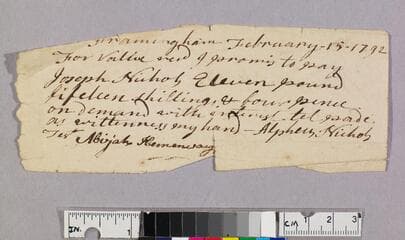 Framingham February - 15 - 1792
For Vallue recd I promis to pay
Joseph Nichols Eleven pound
fifeteen shilling, & four pence
on demand with interest tel paide
as wittenness my hand - Alpheus Nichols
Test Abijah Hemenway
IN
1
2
3
CM
1